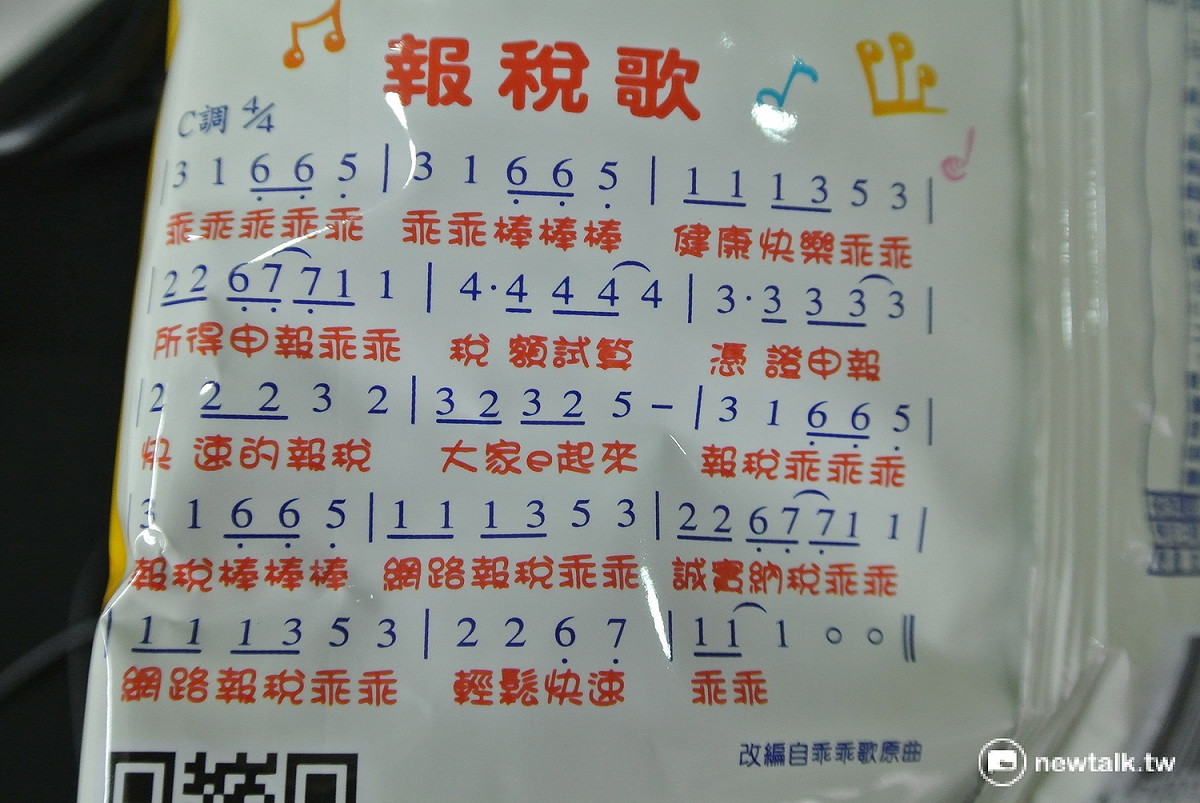 報稅歌
C調 4/4
|3 1 6 6 5 | 3 1 6 6 5 | 1 1 1 3 5 3 |
乖乖乖乖乖 乖乖棒棒棒 健康快樂乖乖
|2 2 6 7 7 1 1 | 4· 4 4 4 4 | 3· 3 3 3 3 |
所得申報乖乖 稅 額試算 憑 證申報
|2 2 2 3 2 | 3 2 3 2 5 – | 3 1 6 6 5 |
快 速的報稅 大家e起來 報稅乖乖乖
|3 1 6 6 5 | 1 1 1 3 5 3 | 2 2 6 7 7 1 1 |
報稅棒棒棒 網路報稅乖乖 誠實納稅乖乖
| 1 1 1 3 5 3 | 2 2 6 7 | 1 1 1 ○ ○ ||
網路報稅乖乖 輕鬆快速 乖乖
改編自乖乖歌原曲
newtalk.tw